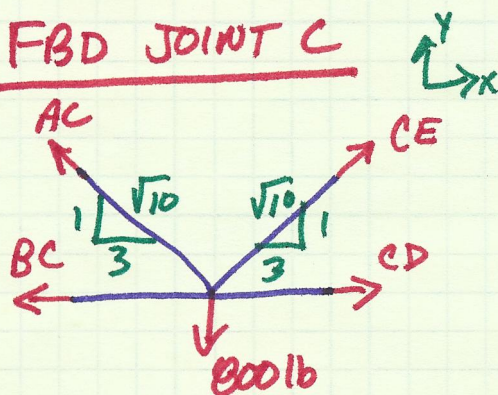 FBD JOINT C
Y
X
AC
CE
1
√10
√10
1
3
3
BC
CD
800lb